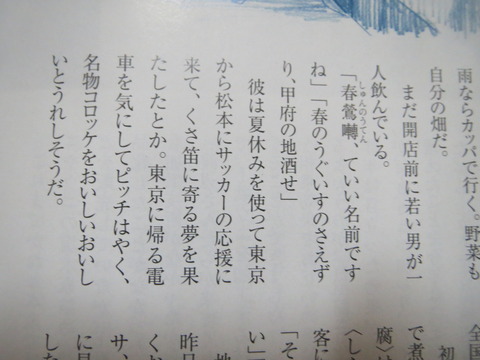 雨ならカッパで行く。野菜も
自分の畑だ。
まだ開店前に若い男が一
人飲んでいる。
しゅんのうてん
「春鶯囀、ていい名前です
ね」「春のうぐいすのさえず
り、甲府の地酒せ」
彼は夏休みを使って東京
から松本にサッカーの応援に
来て、くさ笛に寄る夢を果
たしたとか。東京に帰る電
車を気にしてピッチはやく、
名物コロッケをおいしいおいし
いとうれしそうだ。
全国
初
で煮
腐〉
〈し
客に
「そ
い」
地
昨日
サ、
した